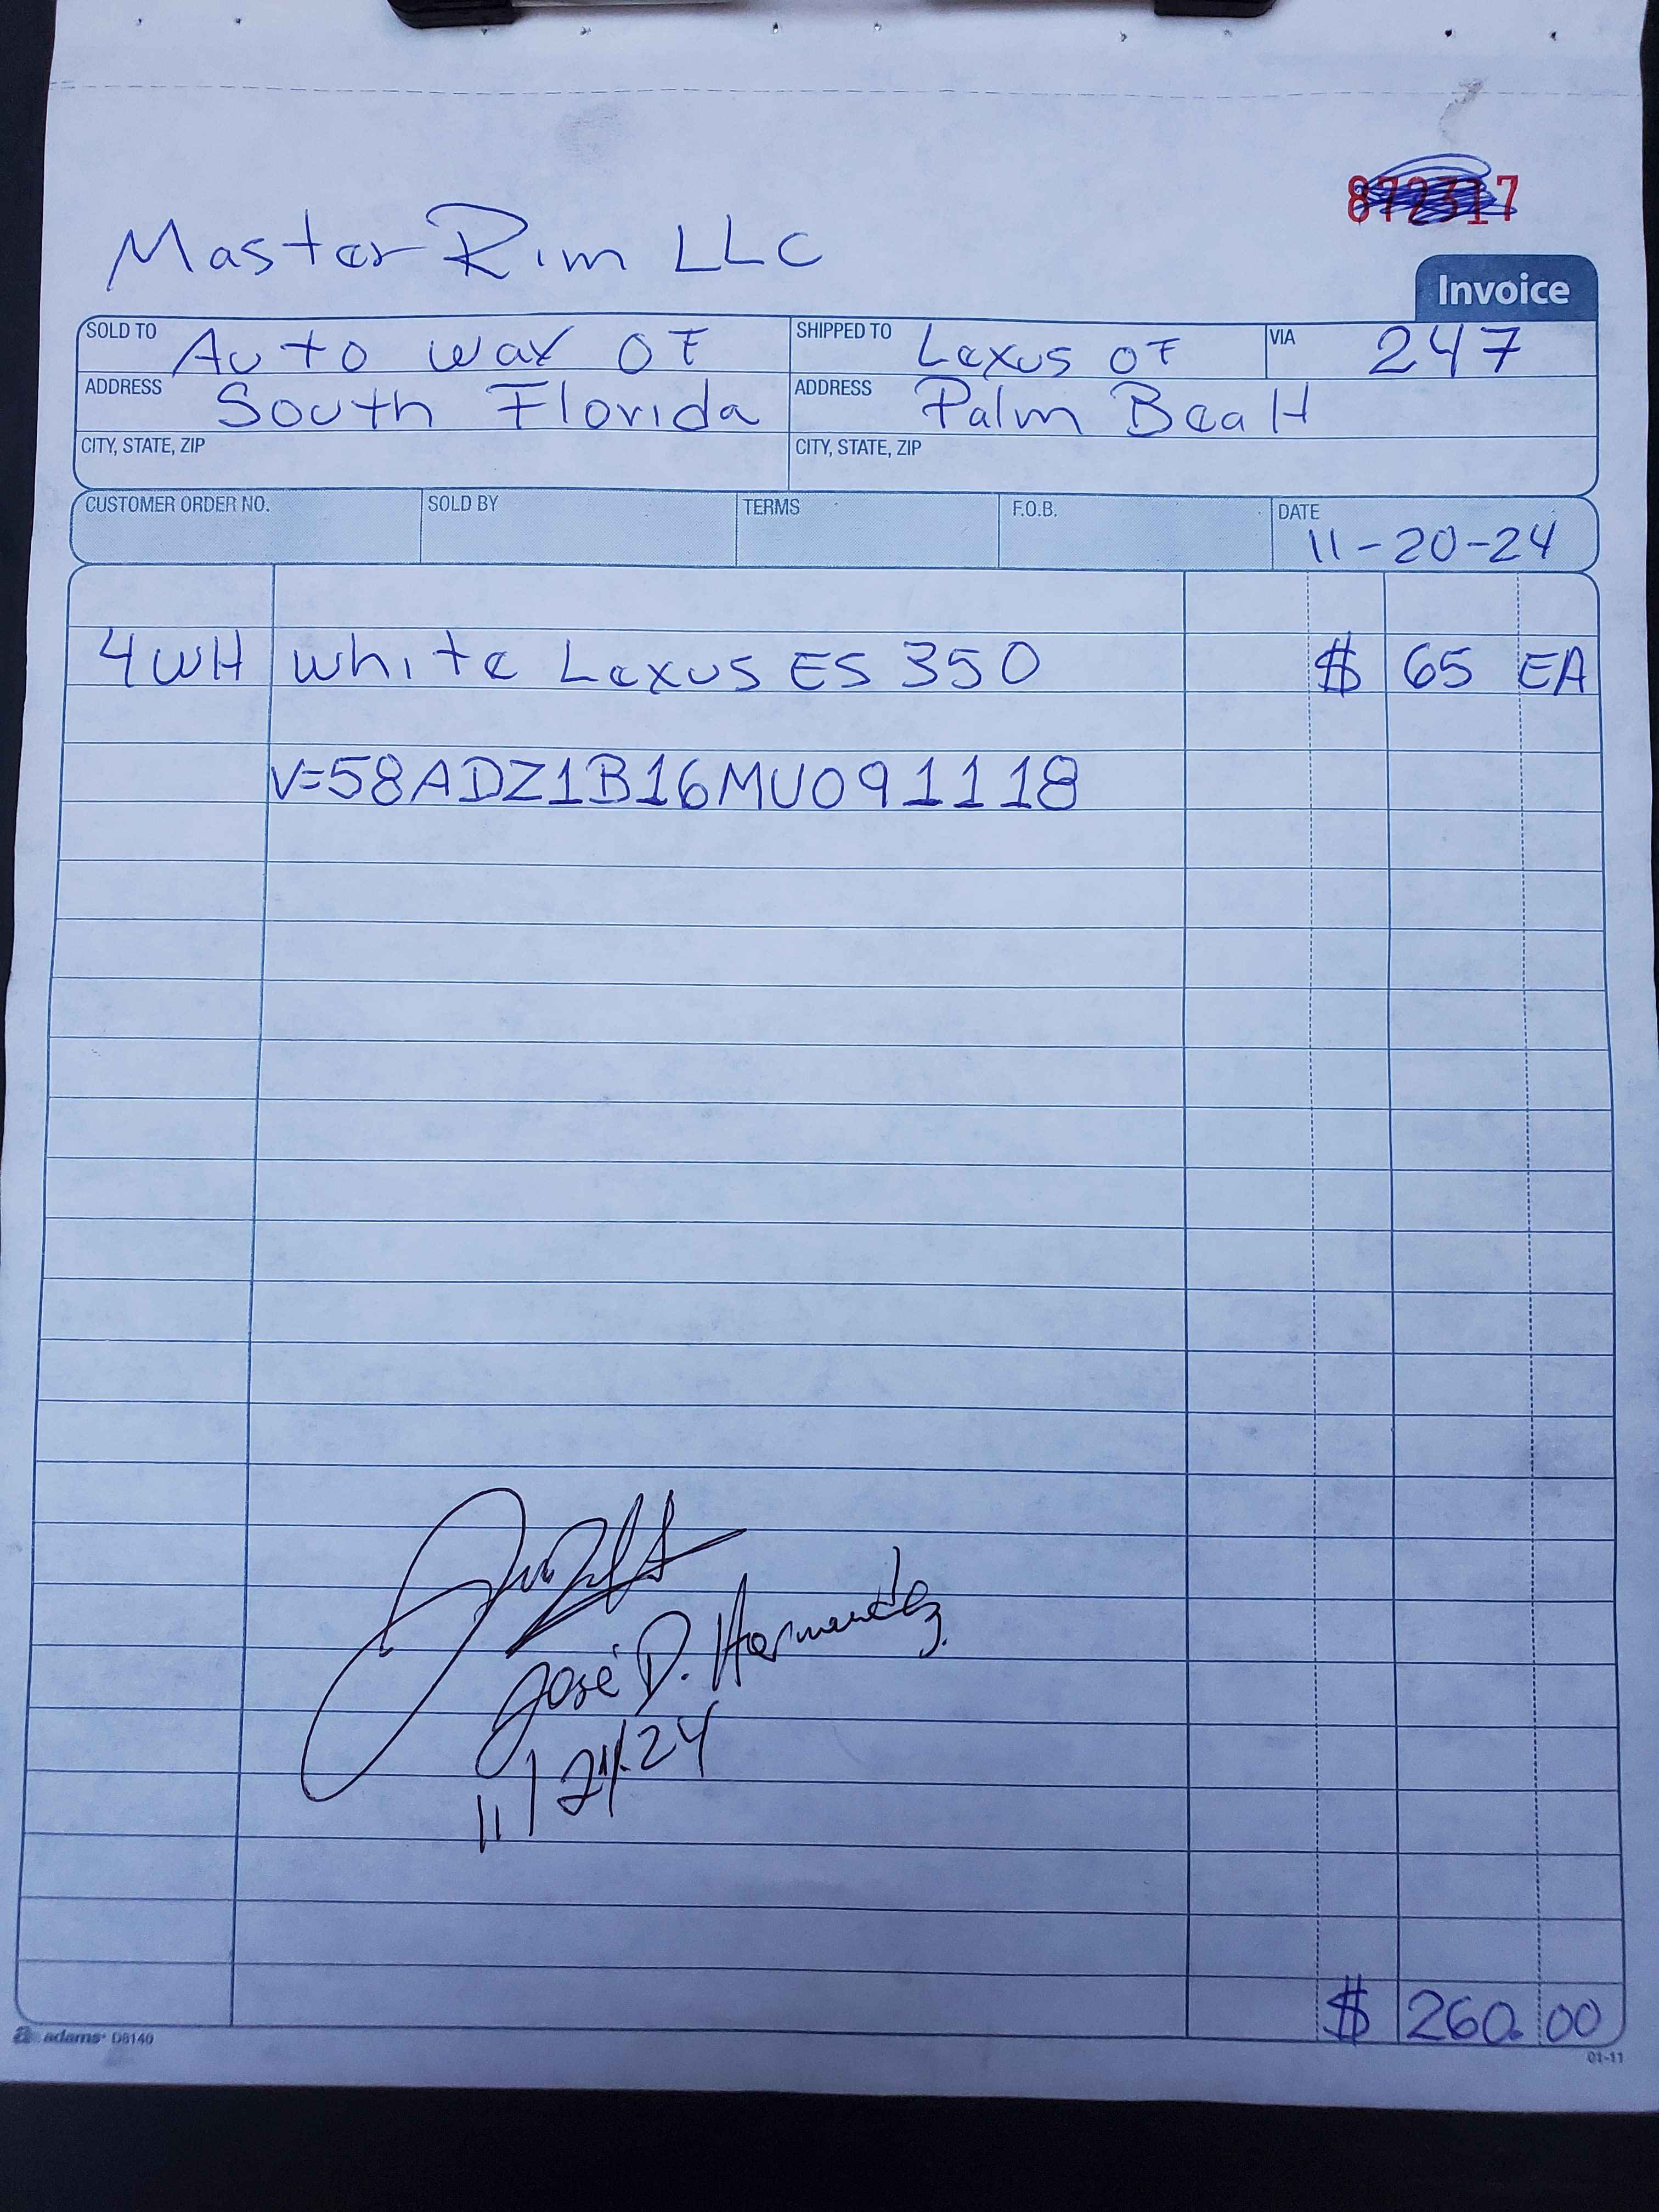 872317
Master Rim LLC
Invoice
SOLD TO Auto wax OF
SHIPPED TO Lexus OF
VIA 247
ADDRESS South Florida
ADDRESS Palm BeaH
CITY, STATE, ZIP
CITY, STATE, ZIP
CUSTOMER ORDER NO. SOLD BY TERMS F.O.B. DATE 11-20-24
4WH white Lexus ES 350 $ 65 EA
V=58ADZ1B16MU091118
José D. Hernandez
11/21/24
$ 260.00
adams D8140
01-11